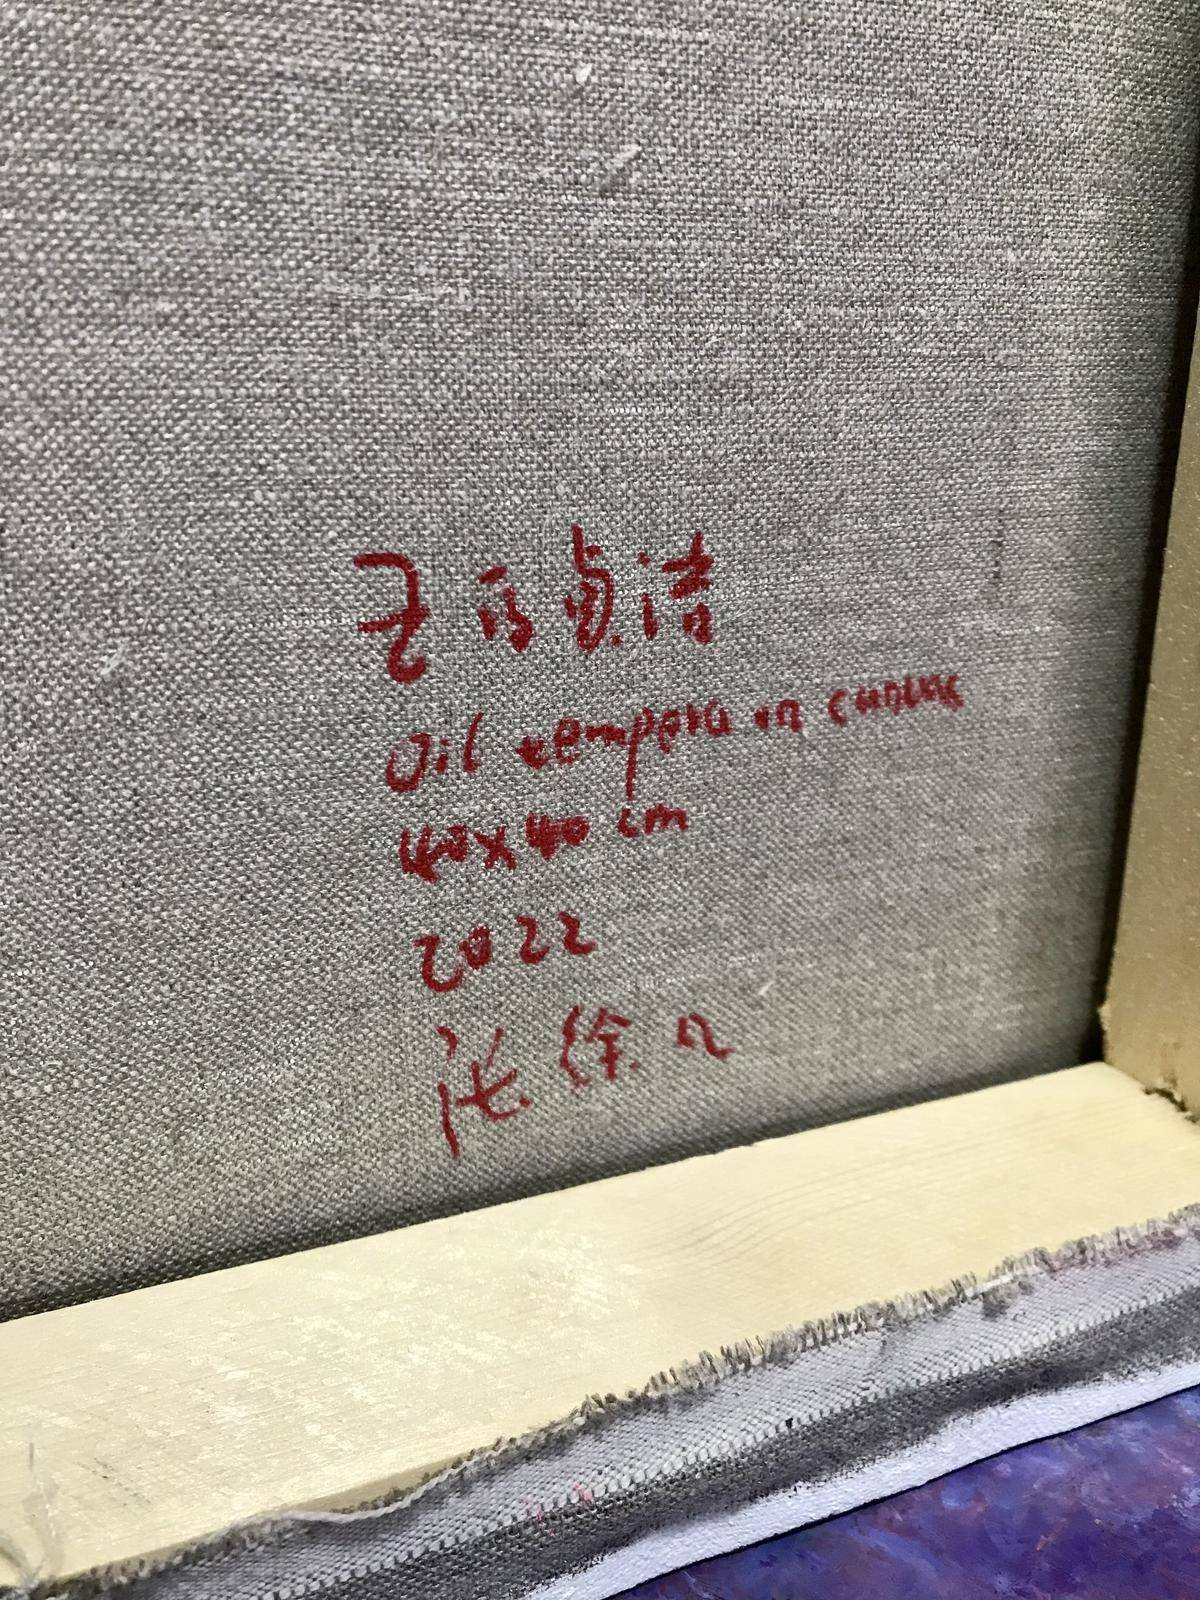 贞洁
Oil tempera on canvas
40x40 cm
2022
张徐